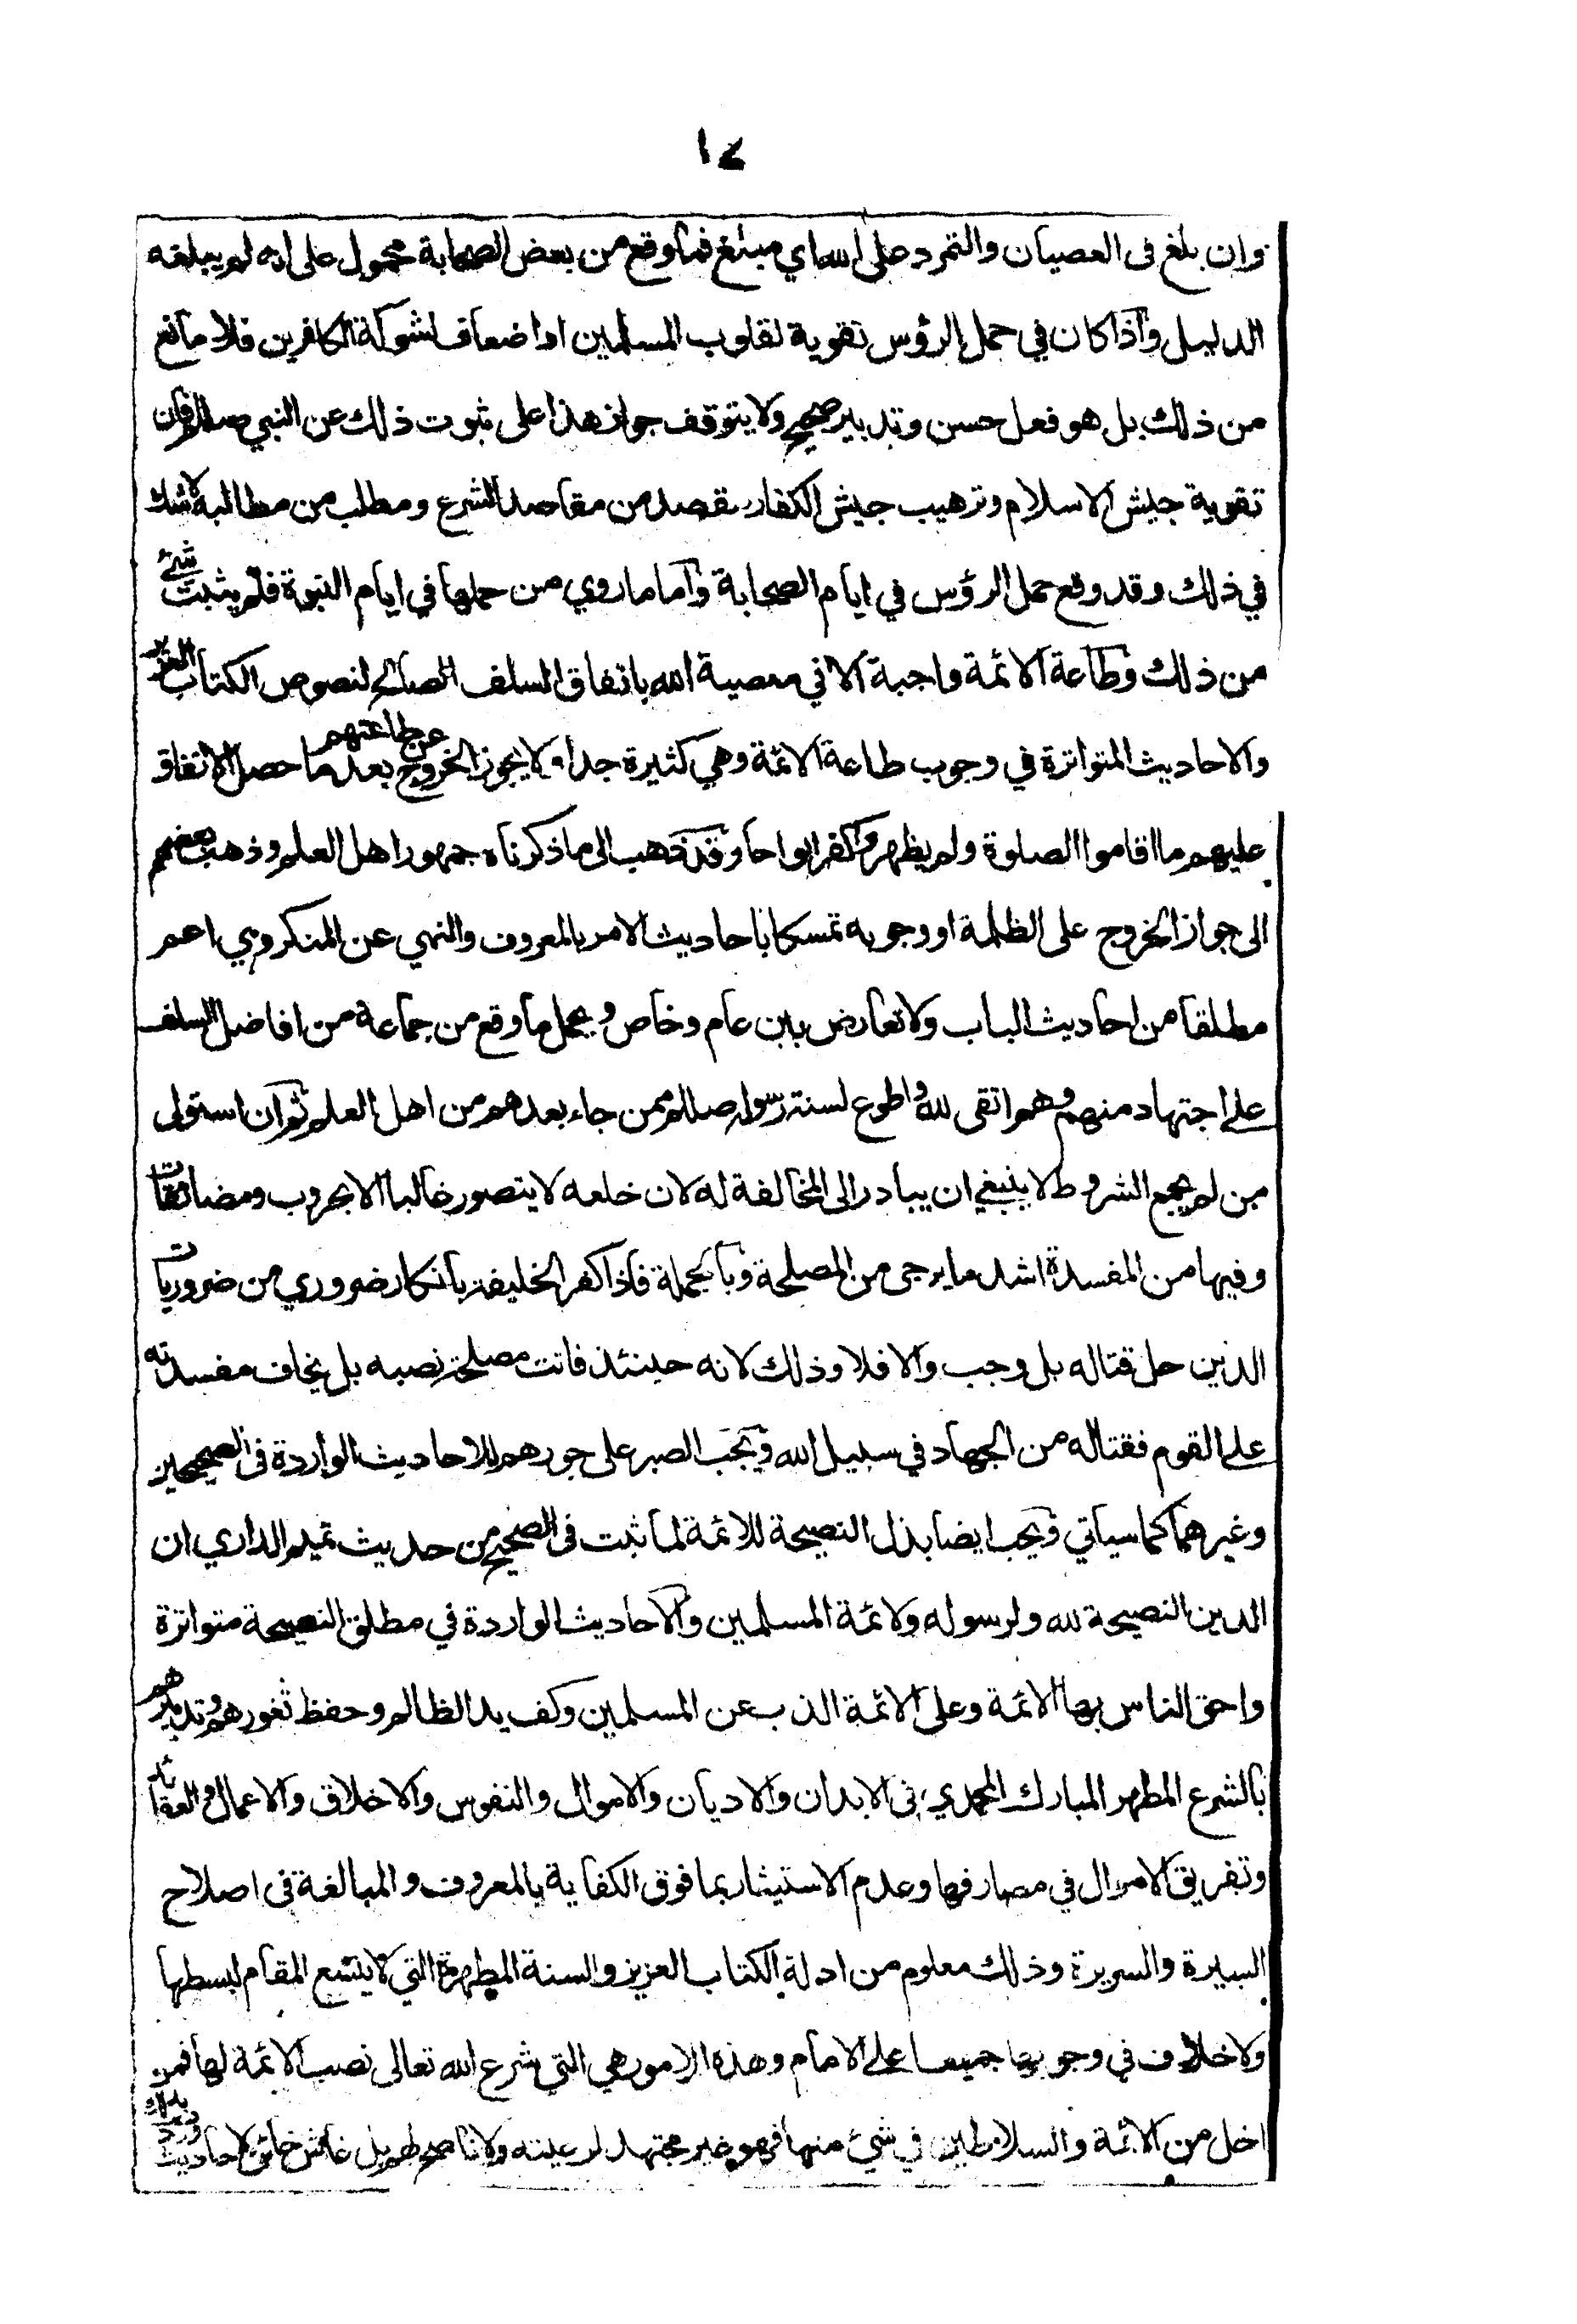 ١٤
وان بلغ في العصيان والتمرد على الله اي مبلغ فما وقع من بعض الصحابة محمول على انه لم يبلغه
الدليل واذا كان في حمل الرؤس تقوية لقلوب المسلمين او اضعاف لشوكة الكافرين فلا مانع
من ذلك بل هو فعل حسن وتدبير صحيح ولا يتوقف جواز هذا على ثبوت ذلك عن النبي صللم فان
تقوية جيش الاسلام وترهيب جيش الكفار مقصد من مقاصد الشرع ومطلب من مطالبه لا شك
في ذلك وقد وقع حمل الرؤس في ايام الصحابة واما ما روي من حملها في ايام النبوة فلم يثبت شئ
من ذلك وطاعة الائمة واجبة الا في معصية الله باتفاق السلف الصالح لنصوص الكتاب العزيز
والاحاديث المتواترة في وجوب طاعة الائمة وهي كثيرة جدا ولا يجوز الخروج عن طاعتهم بعد ما حصل الاتفاق
عليهم ما اقاموا الصلوة ولم يظهروا كفرا بواحا وقد ذهب الى ما ذكرناه جمهور اهل العلم وذهب بعضهم
الى جواز الخروج على الظلمة او وجوبه تمسكا باحاديث الامر بالمعروف والنهي عن المنكر وهي اعم
مطلقا من احاديث الباب ولا تعارض بين عام وخاص ويحمل ما وقع من جماعة من افاضل السلف
على اجتهاد منهم وهم اتقى لله واطوع لسنة رسوله صللم ممن جاء بعدهم من اهل العلم ثم ان استولى
من لم يجمع الشروط لا ينبغي ان يبادر الى المخالفة له لان خلعه لا يتصور غالبا الا بحروب ومضائقات
وفيها من المفسدة اشد ما يرجى من المصلحة وبالجملة فاذا كفر الخليفة بانكار ضروري من ضروريات
الدين حل قتاله بل وجب والا فلا وذلك لانه حينئذ فاتت مصلحة نصبه بل يخاف مفسدته
على القوم فقتاله من الجهاد في سبيل الله ويجب الصبر على جورهم للاحاديث الواردة في الصحيحين
وغيرهما كما سيأتي ويجب ايضا بذل النصيحة للائمة لما ثبت في الصحيح من حديث تميم الداري ان
الدين النصيحة لله ولرسوله ولائمة المسلمين والاحاديث الواردة في مطلق النصيحة متواترة
واحق الناس بها الائمة وعلى الائمة الذب عن المسلمين وكف يد الظالم وحفظ ثغورهم وتدبيرهم
بالشرع المطهر المبارك المحمدي في الابدان والاديان والاموال والنفوس والاخلاق والاعمال والعقائد
وتفريق الاموال في مصارفها وعدم الاستيثار بما فوق الكفاية بالمعروف والمبالغة في اصلاح
السيرة والسريرة وذلك معلوم من ادلة الكتاب العزيز والسنة المطهرة التي لا يتسع المقام لبسطها
ولا خلاف في وجوبها جميعا على الامام وهذه الامور هي التي شرع الله تعالى نصب الائمة لها فمن
اخل من الائمة والسلاطين في شئ منها فهو غير مجتهد لرعيته ولا ناصح لهم بل غاش خائن والاحاديث وردت بذلك